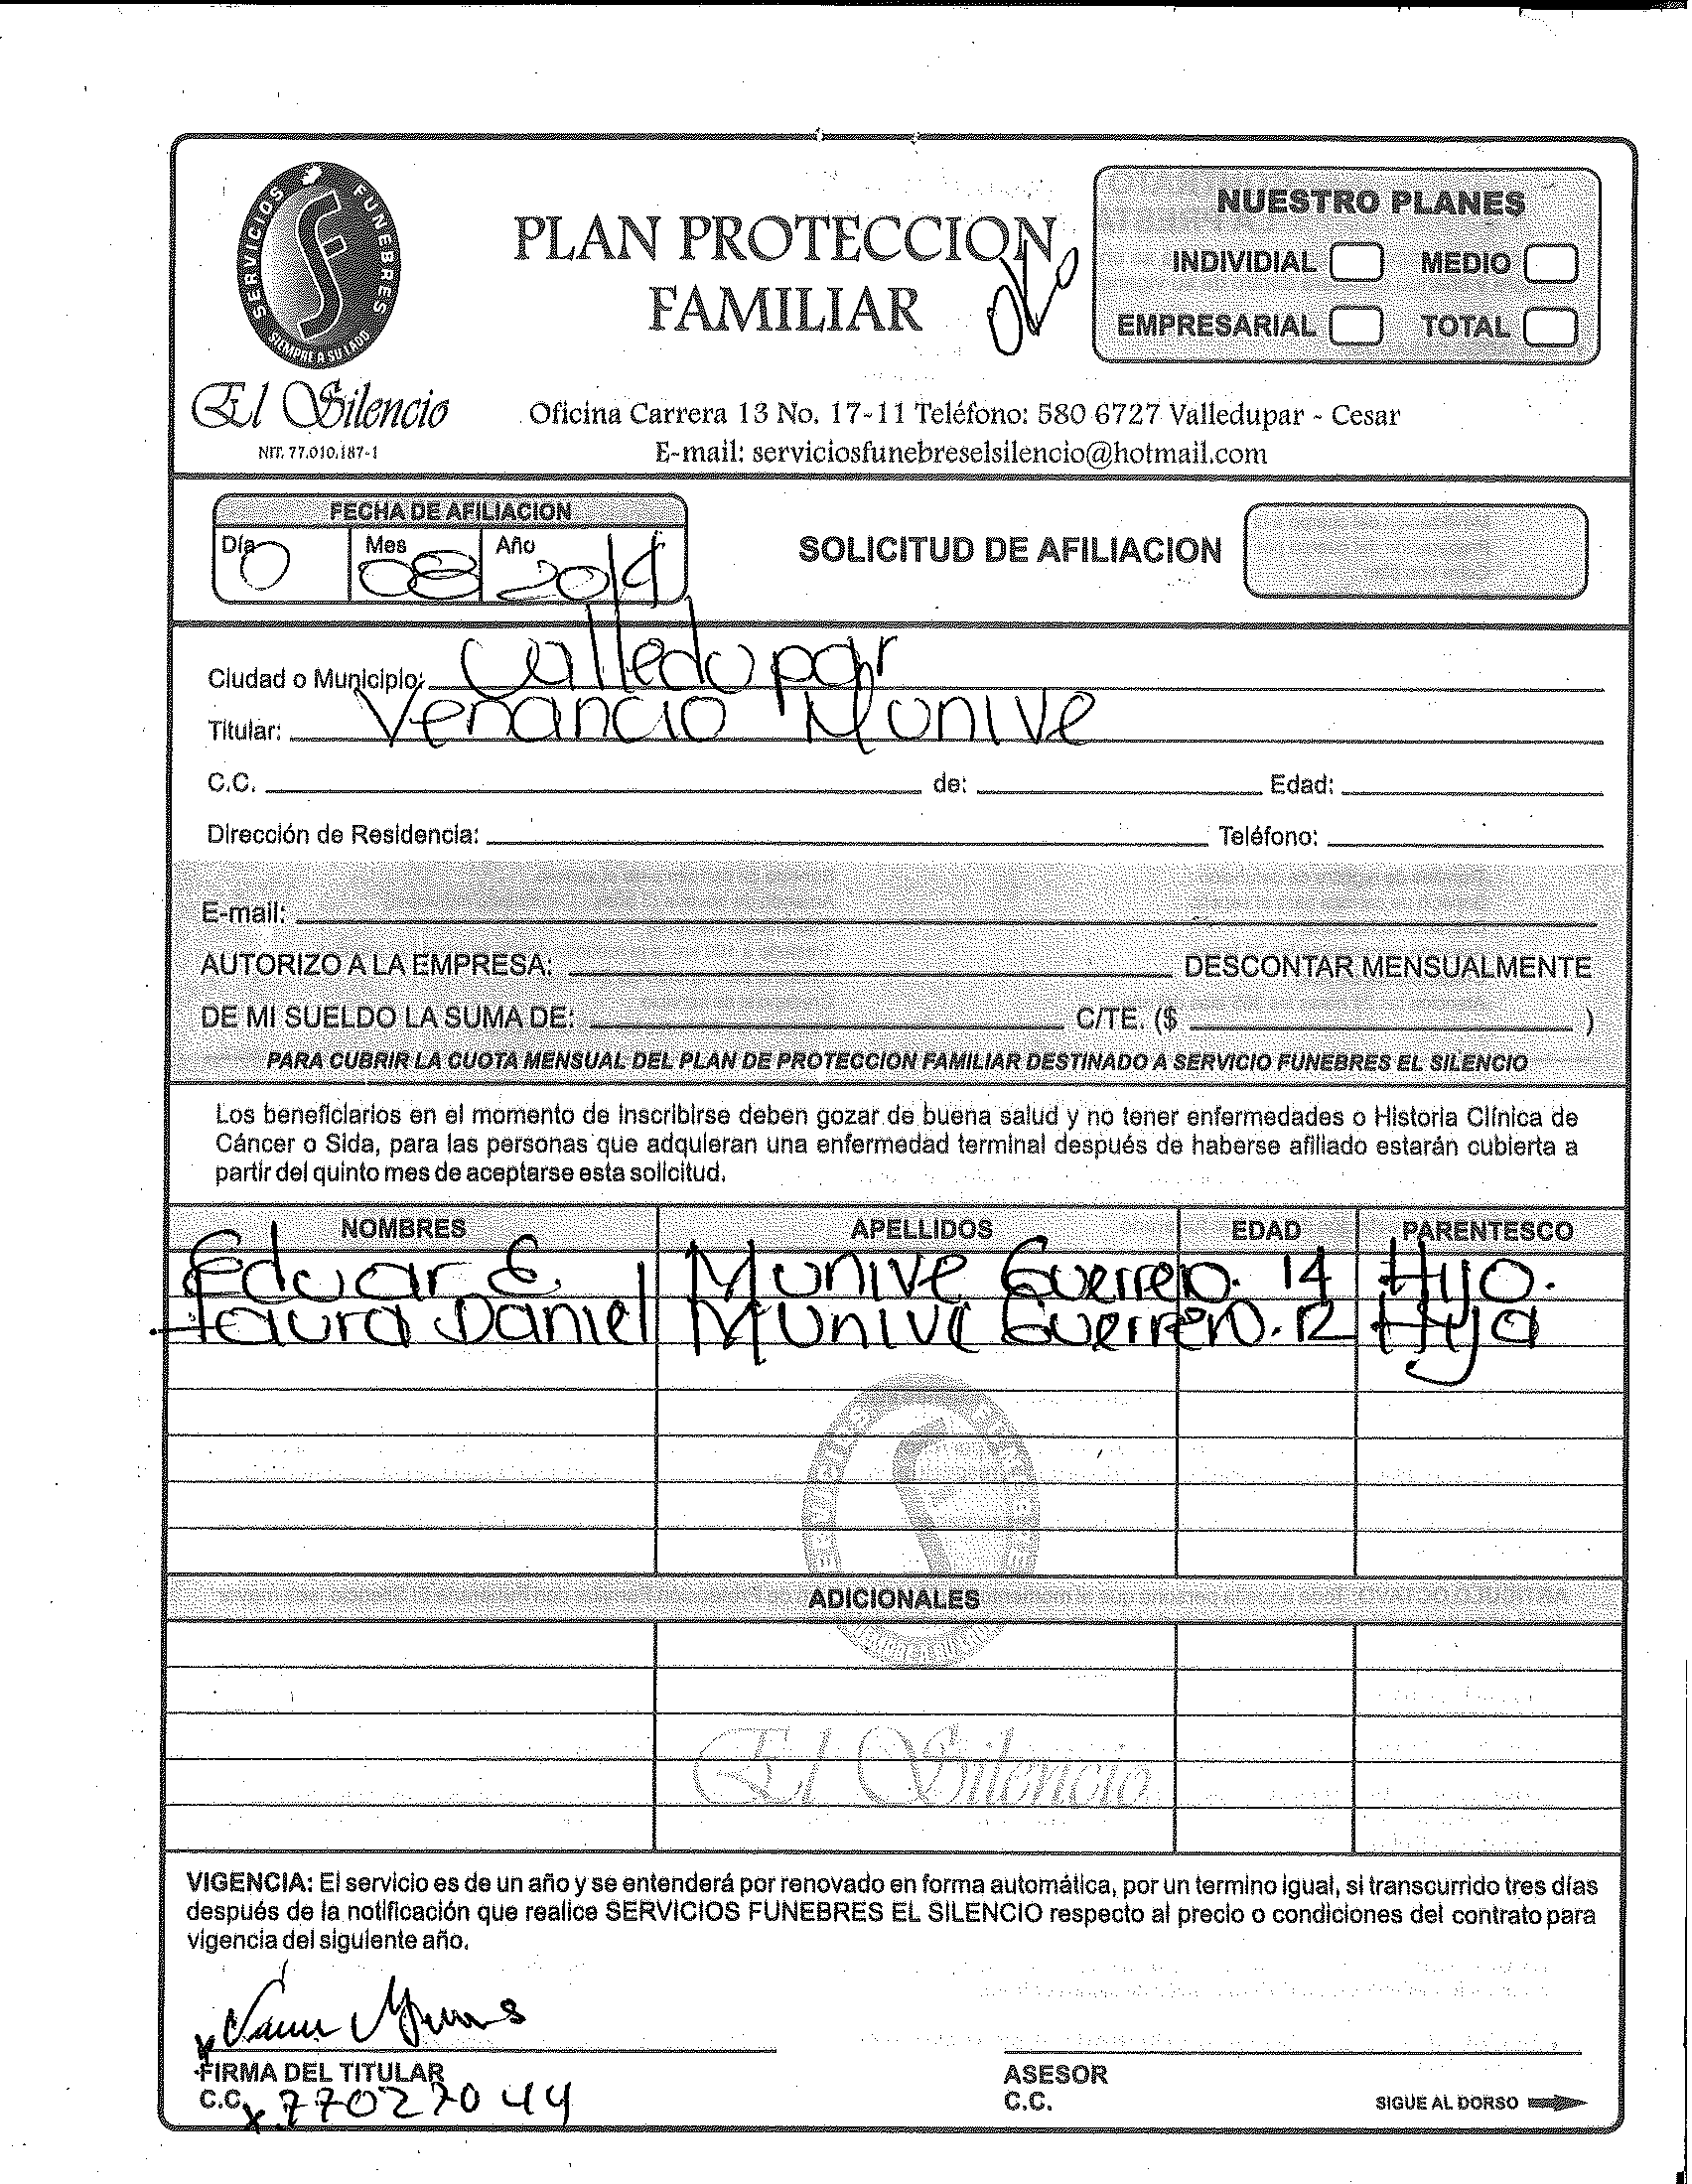 SERVICIOS FUNEBRES
SIEMPRE A SU LADO
El Silencio
NIT. 77.010.187-1
PLAN PROTECCION
FAMILIAR
NUESTRO PLANES
INDIVIDIAL MEDIO
EMPRESARIAL TOTAL
Oficina Carrera 13 No. 17-11 Teléfono: 580 6727 Valledupar - Cesar
E-mail: serviciosfunebreselsilencio@hotmail.com
FECHA DE AFILIACION
Día 0 Mes 08 Año 2014
SOLICITUD DE AFILIACION
Ciudad o Municipio: Valledupar
Titular: Venancio Munive
C.C. de: Edad:
Dirección de Residencia: Teléfono:
E-mail:
AUTORIZO A LA EMPRESA: DESCONTAR MENSUALMENTE
DE MI SUELDO LA SUMA DE: C/TE. ($ )
PARA CUBRIR LA CUOTA MENSUAL DEL PLAN DE PROTECCION FAMILIAR DESTINADO A SERVICIO FUNEBRES EL SILENCIO
Los beneficiarios en el momento de inscribirse deben gozar de buena salud y no tener enfermedades o Historia Clínica de
Cáncer o Sida, para las personas que adquieran una enfermedad terminal después de haberse afiliado estarán cubierta a
partir del quinto mes de aceptarse esta solicitud.
NOMBRES APELLIDOS EDAD PARENTESCO
Eduar E. Munive Guerrero. 14 Hijo.
Laura Daniel Munive Guerrero. 12 Hija
ADICIONALES
El Silencio
VIGENCIA: El servicio es de un año y se entenderá por renovado en forma automática, por un termino igual, si transcurrido tres días
después de la notificación que realice SERVICIOS FUNEBRES EL SILENCIO respecto al precio o condiciones del contrato para
vigencia del siguiente año.
FIRMA DEL TITULAR ASESOR
C.C. x 77027044 C.C. SIGUE AL DORSO